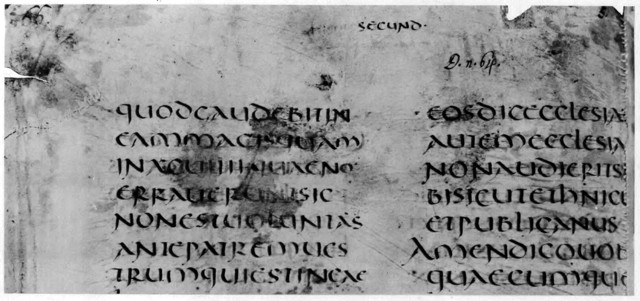 SECUND·
QUODGAUDEBITIN
EAMMAGISQUAM
INXCUIIIIQUAENO
ERRAUERUNTSIC
NONESTUOLUNTAS
ANTEPATREMUES
TRUMQUIESTINCAE
EOSDICECCLESIAE
AUTEMECCLESIA
NONAUDIERITS
BISICUTETHNICU
ETPUBLICANUS
AMENDICOUOB
QUAECUMQUE